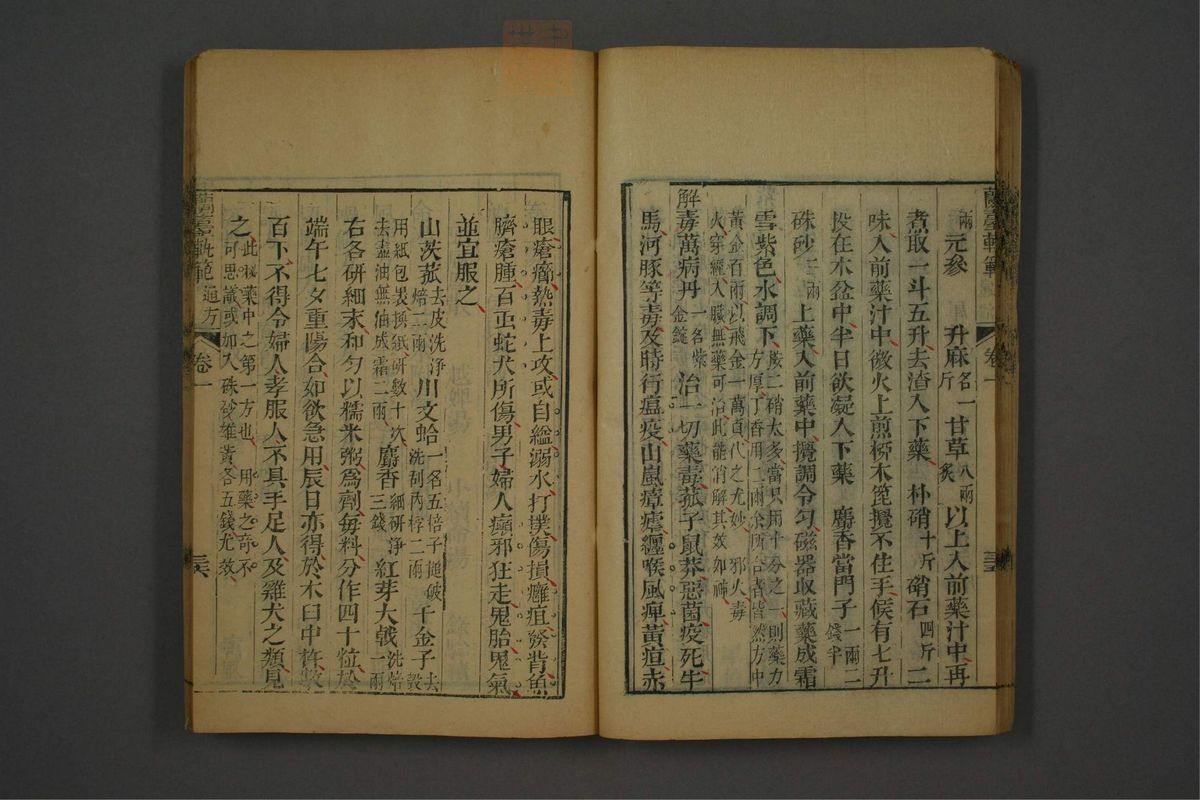 蘭臺軌範 卷一 三五
兩 元參 升麻各一斤 甘草八兩炙 以上入前藥汁中再
煮取一斗五升去渣入下藥 朴硝十斤 硝石四斤 二
味入前藥汁中微火上煎栁木箆攪不住手候有七升
投在木盆中半日欲凝入下藥 麝香當門子一兩二錢半
硃砂三兩 上藥入前藥中攪調令勻磁器收藏藥成霜
雪紫色水調下 按二硝太多當只用十分之一則藥力方厚丁香用二兩余所合者皆然方中
黃金百兩以飛金一萬頁代之尤妙 邪火毒火穿經入臟無藥可治此能消解其效如神
解毒萬病丹一名紫金錠 治一切藥毒菰子鼠莽惡菌疫死牛
馬河豚等毒及時行瘟疫山嵐瘴瘧纏喉風痺黃疸赤
眼瘡癤熱毒上攻或自縊溺水打撲傷損癰疽發背魚
臍瘡腫百虫蛇犬所傷男子婦人癲邪狂走鬼胎鬼氣
並宜服之
山茨菰去皮洗淨焙二兩 川文蛤一名五倍子搥破洗刮內桴二兩 千金子去殼
用紙包裹換紙研數十次去盡油無油成霜二兩 麝香細研淨三錢 紅芽大戟洗焙一兩
右各研細末和勻以糯米粥爲劑每料分作四十粒於
端午七夕重陽合如飲急用辰日亦得於木臼中杵數
百下不得令婦人孝服人不具手足人及雞犬之類見
之 此秘藥中之第一方也 用藥之奇不可思議或加入硃砂雄黃各五錢尤效
蘭臺軌範 通方 卷一 三六